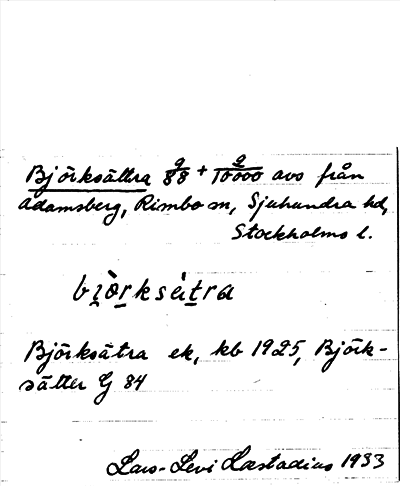 Björksättra 9/88 + 2/10000 avs från
Adamsberg, Rimbo sn, Sjuhundra hd,
Stockholms l.
bi̯ò̱rksátra
Björksätra ek, kb 1925, Björk-
sätter G 84
Lars-Levi Læstadius 1933